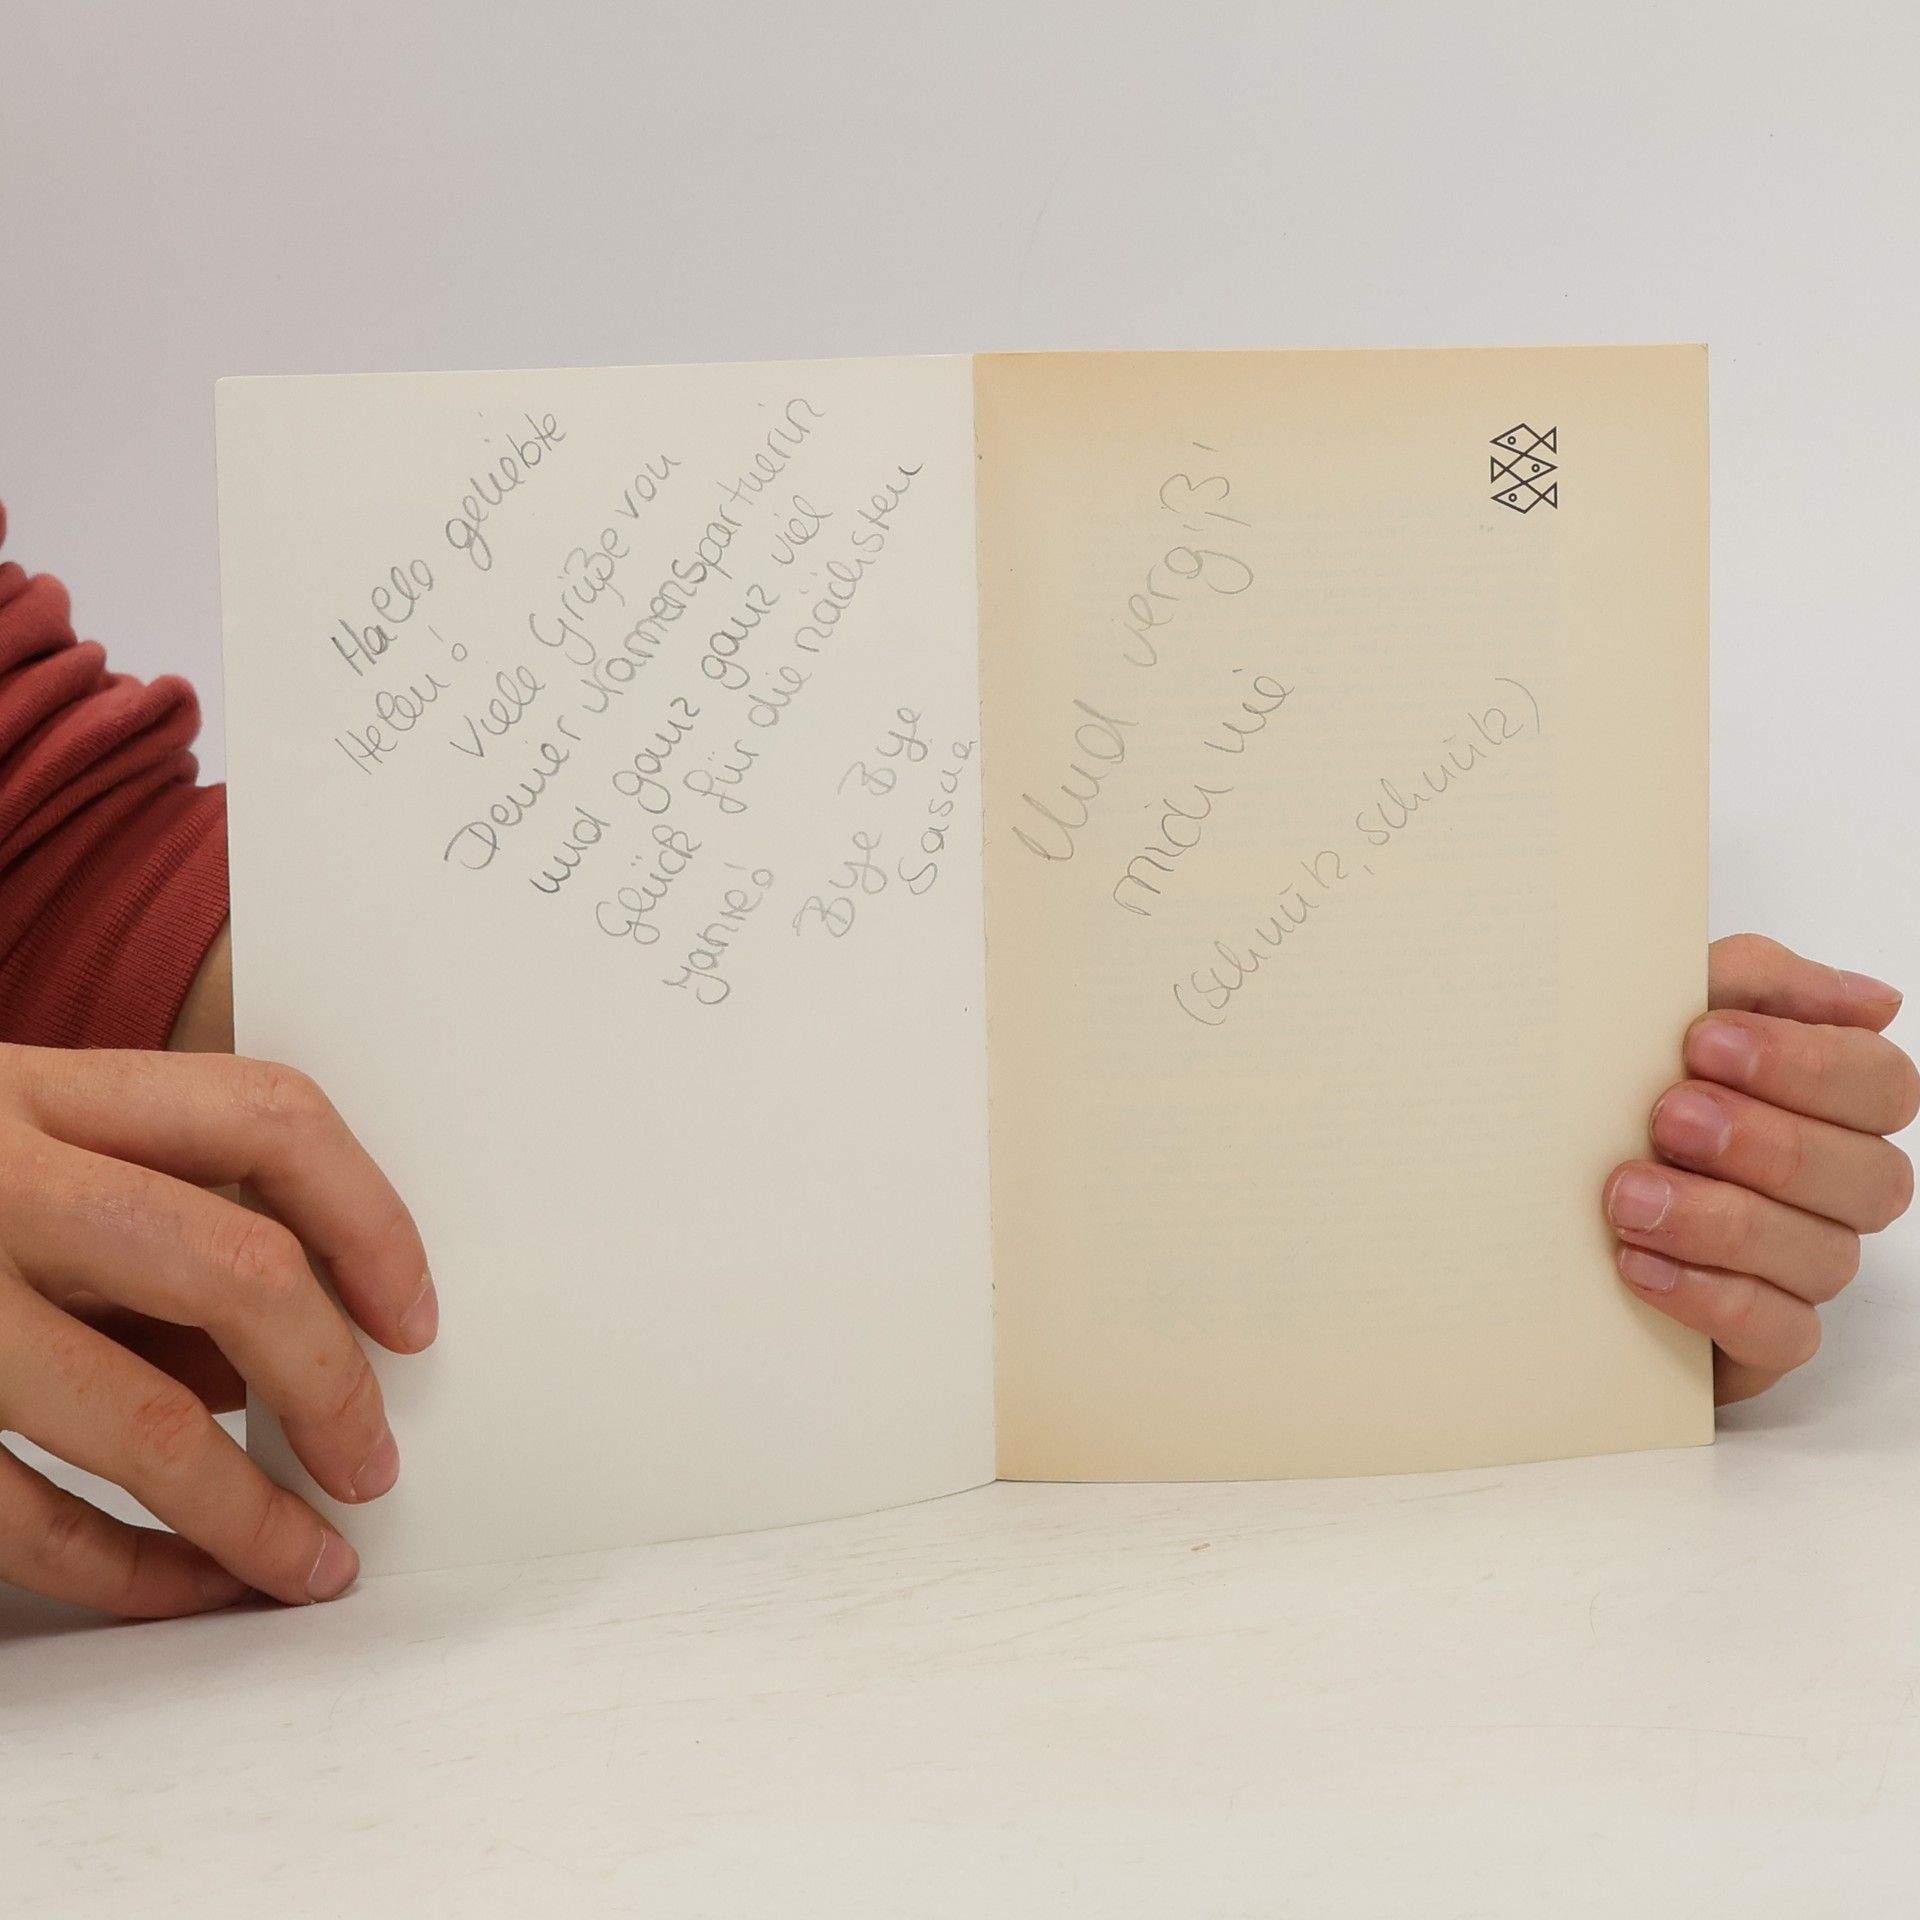 Hallo geliebte
Helen!
Viele Grüße von
Deiner Namenspartnerin
und ganz ganz viel
Glück für die nächsten
Jahre!
Bye Bye
Sascha
Und vergiß,
mich nie
(schnütz, schnütz)